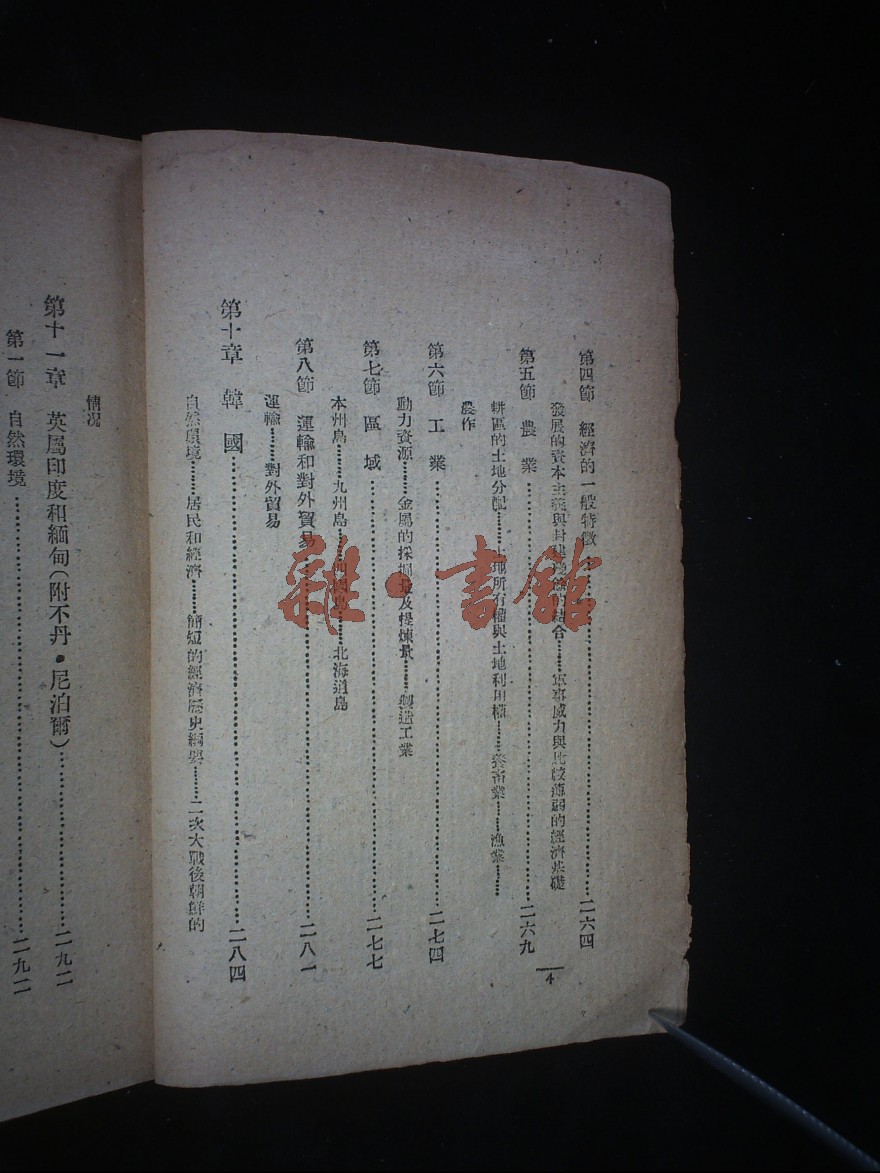 第四節 經濟的一般特徵……二六四
發展的資本主義與封建殘餘的結合……軍事威力與比較薄弱的經濟基礎
第五節 農業……二六九
耕區的土地分配……土地所有權與土地利用權……養畜業……漁業……
農作
第六節 工業……二七四
動力資源……金屬的採掘量及提煉量……製造工業
第七節 區域……二七七
本州島……九州島……四國島……北海道島
第八節 運輸和對外貿易……二八一
運輸……對外貿易
第十章 韓國……二八四
自然環境……居民和經濟……簡短的經濟歷史綱要……二次大戰後朝鮮的
情況
第十一章 英屬印度和緬甸(附不丹•尼泊爾)……二九二
第一節 自然環境……二九二
4
雜•書館